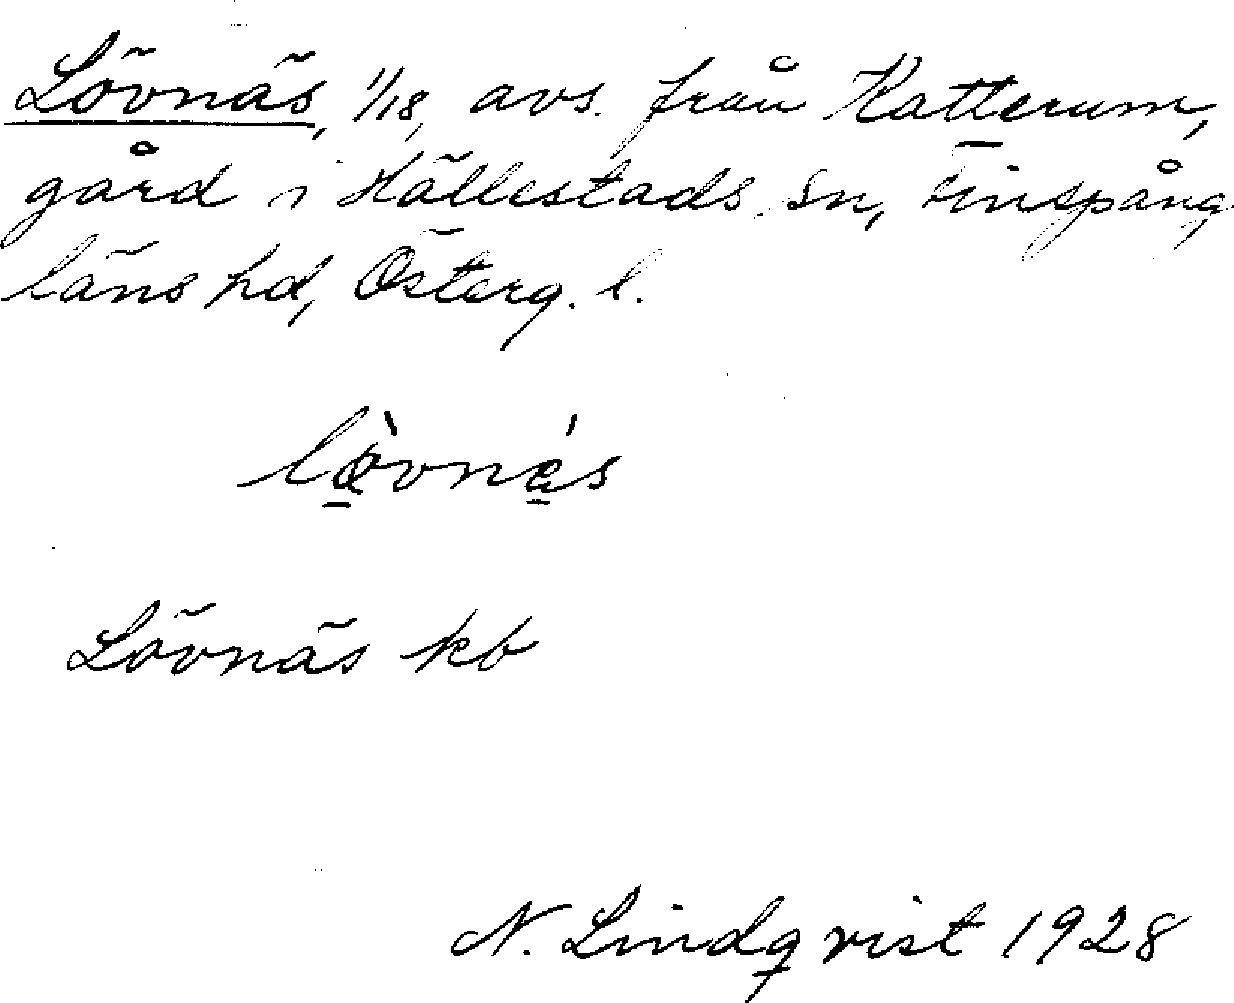 Lövnäs, 1/18, avs. från Katterum,
gård i Hällestads sn, Finspång
läns hd, Österg. l.
lö̀vnä́s
Lövnäs kb
N. Lindqvist 1928